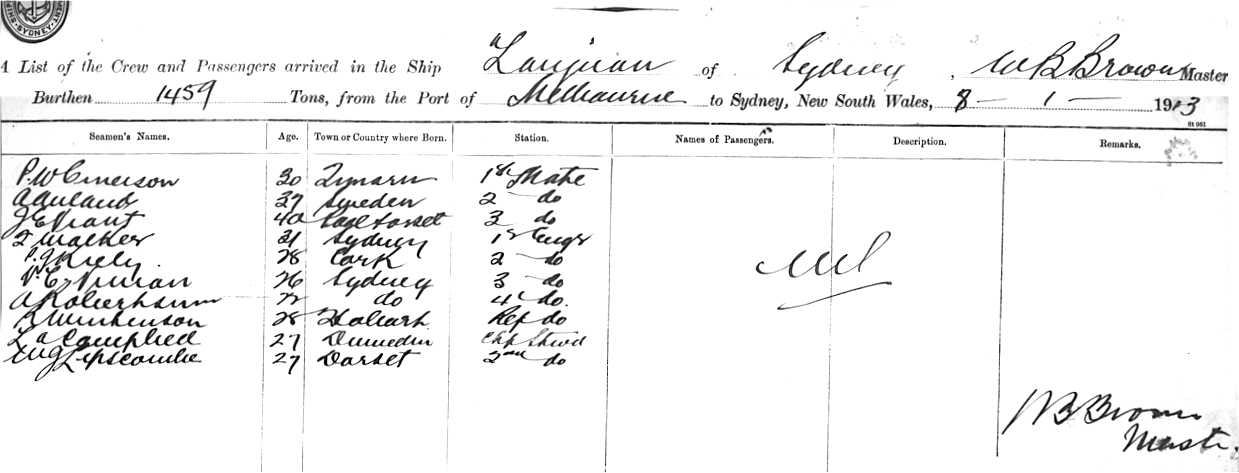 SYDNEY
A List of the Crew and Passengers arrived in the Ship "Taiyuan of Sydney, W B Brown Master
Burthen 1459 Tons, from the Port of Melbourne to Sydney, New South Wales, 8 — 1 — 1913
Seamen's Names. Age. Town or Country where Born. Station. Names of Passengers. Description. Remarks.
P. W Emerson 30 Timaru 1st Mate
27 Sweden 2 do
J E Grant 40 3 do
Walker 31 Sydney 1st Engr
P. J Kiely 28 Cork 2 do
26 Sydney 3 do
A Robertson do 4 do.
28 Hobart Ref do
Campbell 27 Dunedin Chf Stwd
Lipscombe 27 Dorset 2nd do
Nil
W B Brown
Master.